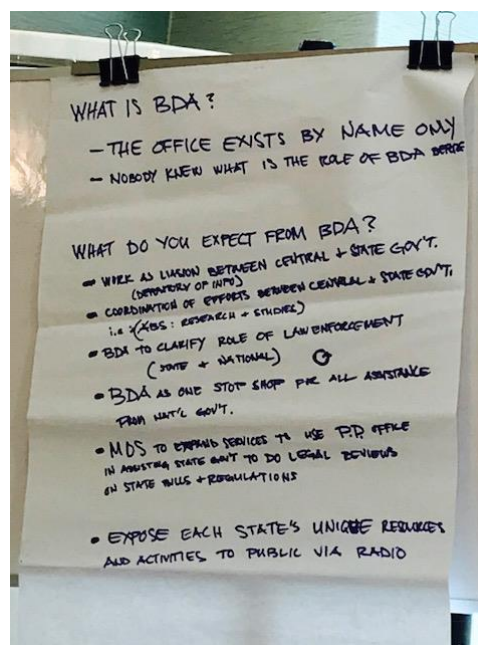 WHAT IS BDA?
- THE OFFICE EXISTS BY NAME ONLY
- NOBODY KNEW WHAT IS THE ROLE OF BDA BEFORE
WHAT DO YOU EXPECT FROM BDA?
- WORK AS LIASION BETWEEN CENTRAL + STATE GOV'T.
(DEPOSITORY OF INFO)
• COORDINATION OF EFFORTS BETWEEN CENTRAL + STATE GOV'T.
i.e : RESEARCH + STUDIES)
• BDA TO CLARIFY ROLE OF LAW ENFORCEMENT
(STATE + NATIONAL)
• BDA AS ONE STOP SHOP FOR ALL ASSISTANCE
FROM NAT'L GOV'T.
• MOS TO EXPAND SERVICES TO USE P.D. OFFICE
IN ASSISTING STATE GOV'T TO DO LEGAL REVIEWS
ON STATE BILLS + REGULATIONS
• EXPOSE EACH STATE'S UNIQUE RESOURCES
AND ACTIVITIES TO PUBLIC VIA RADIO